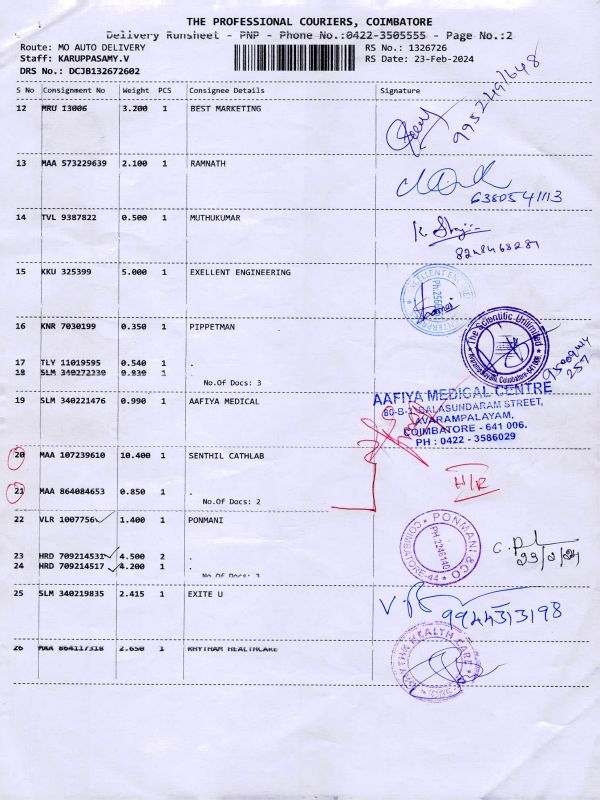 THE PROFESSIONAL COURIERS, COIMBATORE
Delivery Runsheet - PNP - Phone No.:0422-3505555 - Page No.:2
Route: MO AUTO DELIVERY RS No.: 1326726
Staff: KARUPPASAMY.V RS Date: 23-Feb-2024
DRS No.: DCJB132672602
S No Consignment No Weight PCS Consignee Details Signature
12 MRU 13006 3.200 1 BEST MARKETING
13 MAA 573229639 2.100 1 RAMNATH
6380541113
14 TVL 9387822 0.500 1 MUTHUKUMAR
15 KKU 325399 5.000 1 EXELLENT ENGINEERING
16 KNR 7030199 0.350 1 PIPPETMAN
The Scientific Unlimited
17 TLY 11019595 0.540 1 .
18 SLM 340272230 0.830 1 .
No.Of Docs: 3
19 SLM 340221476 0.990 1 AAFIYA MEDICAL
AAFIYA MEDICAL CENTRE
80-B-2, BALASUNDARAM STREET,
AVARAMPALAYAM,
COIMBATORE - 641 006.
PH : 0422 - 3586029
20 MAA 107239610 10.400 1 SENTHIL CATHLAB
H/R
21 MAA 864084653 0.850 1 .
No.Of Docs: 2
22 VLR 1007756 1.400 1 PONMANI
PONMANI & CO
COIMBATORE-44
23 HRD 709214531 4.500 2 .
24 HRD 709214517 4.200 1 .
No.Of Docs: 3
23/2/24
25 SLM 340219835 2.415 1 EXITE U
9944313198
26 MAA 864117318 2.650 1 RHYTHAM HEALTHCARE
RHYTHM HEALTH CARE